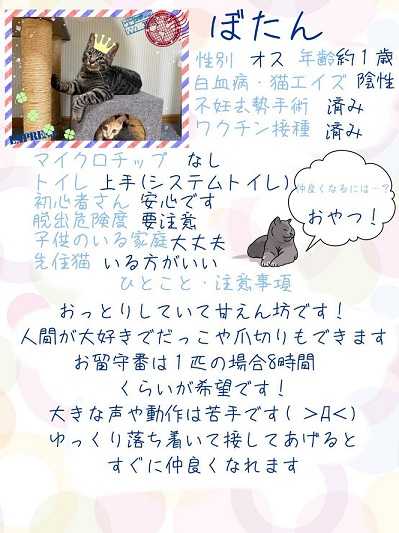 ぼたん
性別 オス 年齢約1歳
白血病・猫エイズ 陰性
不妊去勢手術 済み
ワクチン接種 済み
マイクロチップ なし
トイレ 上手(システムトイレ)
初心者さん 安心です
脱出危険度 要注意
子供のいる家庭大丈夫
先住猫 いる方がいい
仲良くなるには…?
おやつ!
ひとこと・注意事項
おっとりしていて甘えん坊です!
人間が大好きでだっこや爪切りもできます
お留守番は1匹の場合8時間
くらいが希望です!
大きな声や動作は苦手です( >A<)
ゆっくり落ち着いて接してあげると
すぐに仲良くなれます